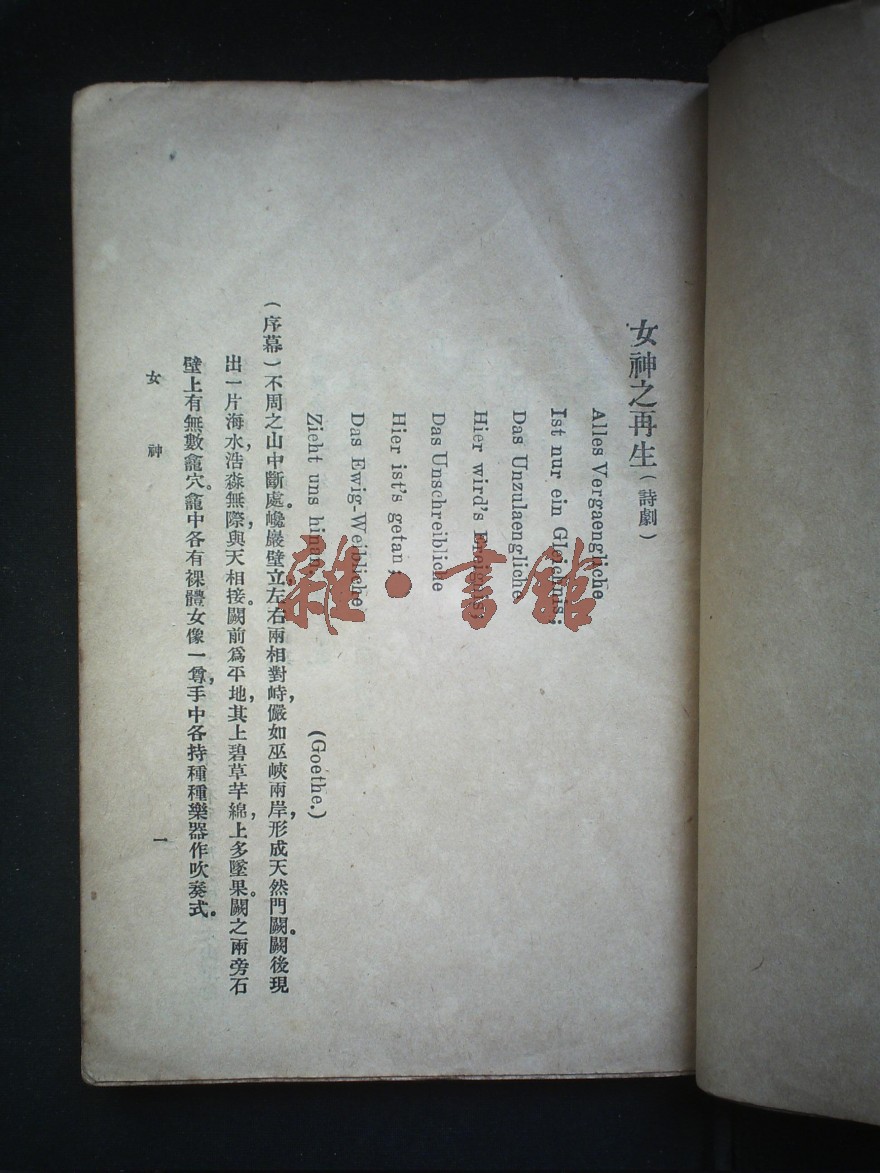 女神之再生（詩劇）
Alles Vergaengliche
Ist nur ein Gleichnis;
Das Unzulaengliche
Hier wird's Ereignis;
Das Unschreibliche
Hier ist's getan;
Das Ewig-Weibliche
Zieht uns hinan.
(Goethe.)
（序幕）不周之山中斷處。巉巖壁立，左右兩相對峙，儼如巫峽兩岸，形成天然門闕。闕後現
出一片海水，浩淼無際，與天相接。闕前爲平地，其上碧草芊綿，上多墜果。闕之兩旁石
壁上有無數龕穴。龕中各有裸體女像一尊，手中各持種種樂器作吹奏式。
女神
一
雜·書館